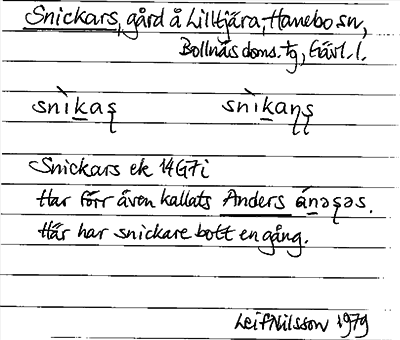 Snickars, gård å Lilltjära, Hanebo sn,
Bollnäs doms. tg, Gävl. l.
snìkaʂ snìkaɳʂ
Snickars ek 14G7i
Har förr även kallats Anders ánəʂəs.
Här har snickare bott en gång.
Leif Nilsson 1979